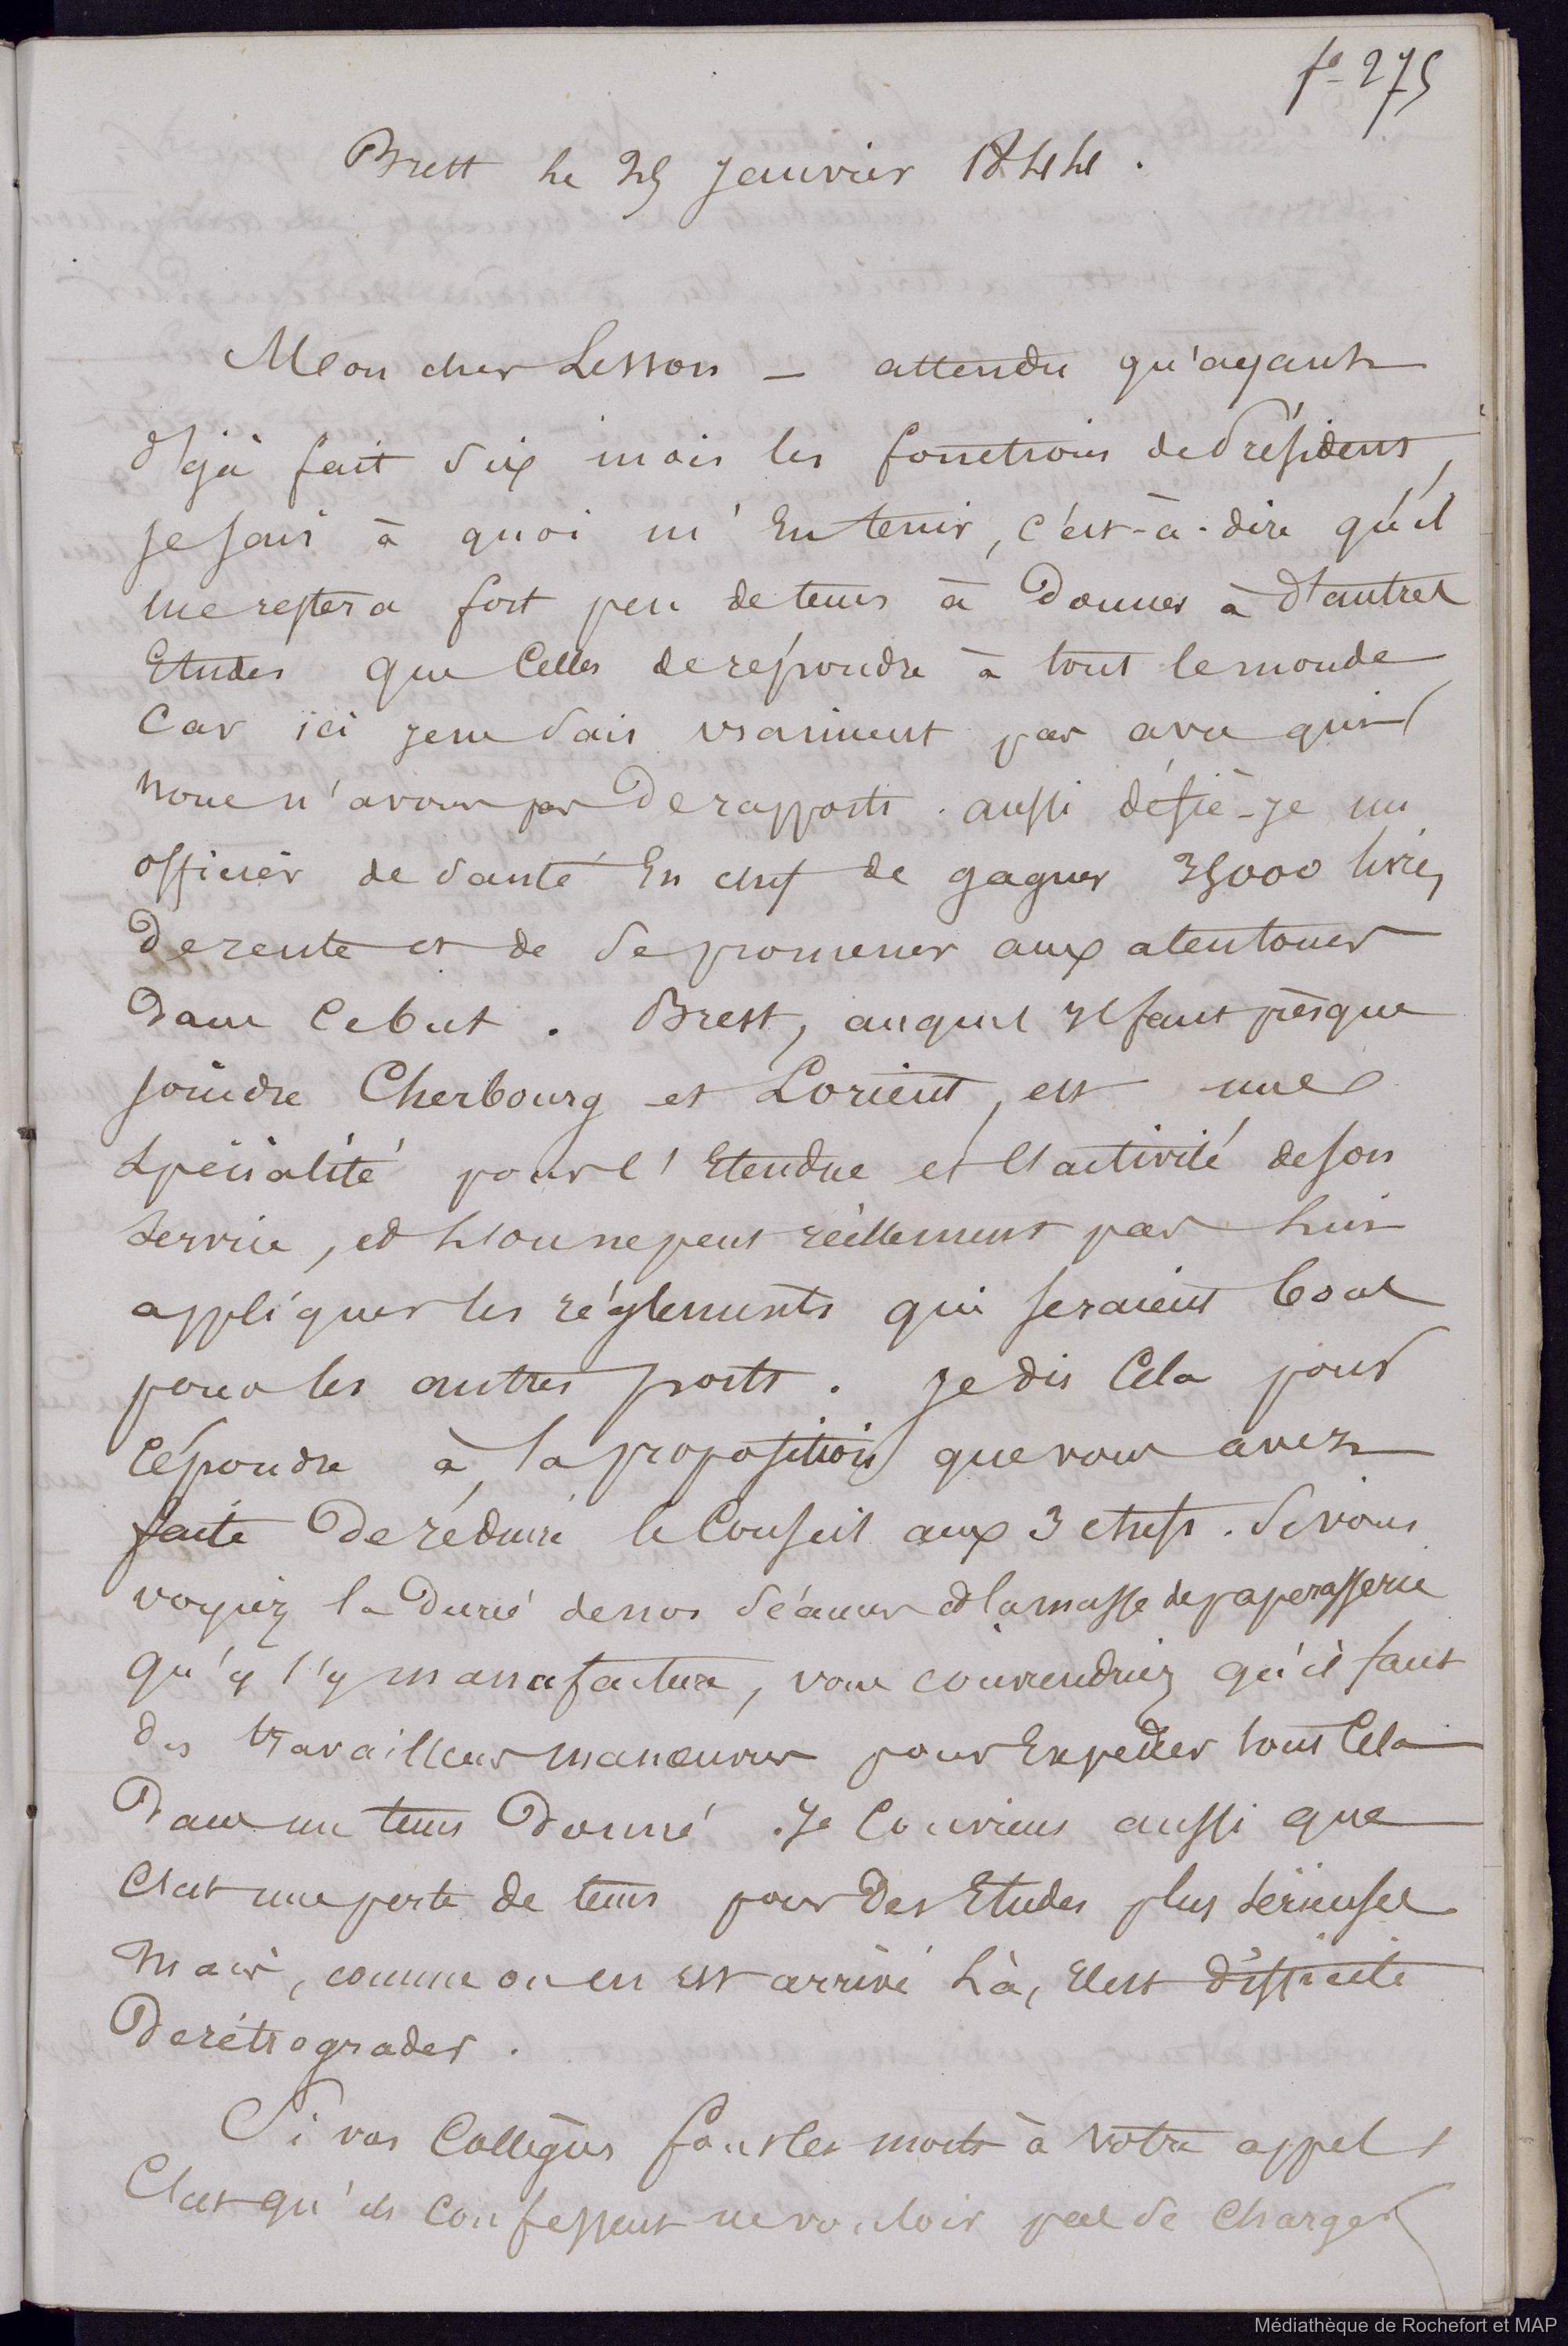 fo 275
Brest le 25 Janvier 1844.
Mon cher Lesson — attendu qu'ayant
déjà fait six mois les fonctions de Président,
je sais à quoi m'En tenir, c'est-à-dire qu'il
me restera fort peu de tems à Donner à D'autres
Etudes que Celles de répondre à tout le monde
Car ici je ne sais vraiment pas avec qui
nous n'avons pas De rapports. aussi défiè-je un
officier de santé En chef de gagner 35000 livres
De rente et de se promener aux alentours
Dans Ce but. Brest, auquel Il faut presque
joindre Cherbourg et Lorient, est une
spécialité pour l'Etendue et l'activité de son
service, et l'on ne peut réellement pas lui
appliquer les réglements qui seraient bons
pour les autres ports. Je dis Cela pour
répondre à la proposition que vous avez
faite De réduire le Conseil aux 3 chefs. Si vous
voyiez la Durée de nos séances et la masse de paperasserie
qu'il s'y manufacture, vous conviendriez qu'il faut
des travailleurs manœuvres pour Expédier tout Cela
Dans un tems Donné. Je Conviens aussi que
C'est une perte de tems pour Des Etudes plus sérieuses
Mais, comme on en Est arrivé là, Il est difficile
De rétrograder.
Si vos Collègues font les morts à votre appel,
C'est qu'ils Confessent ne vouloir pas se Charger
Médiathèque de Rochefort et MAP